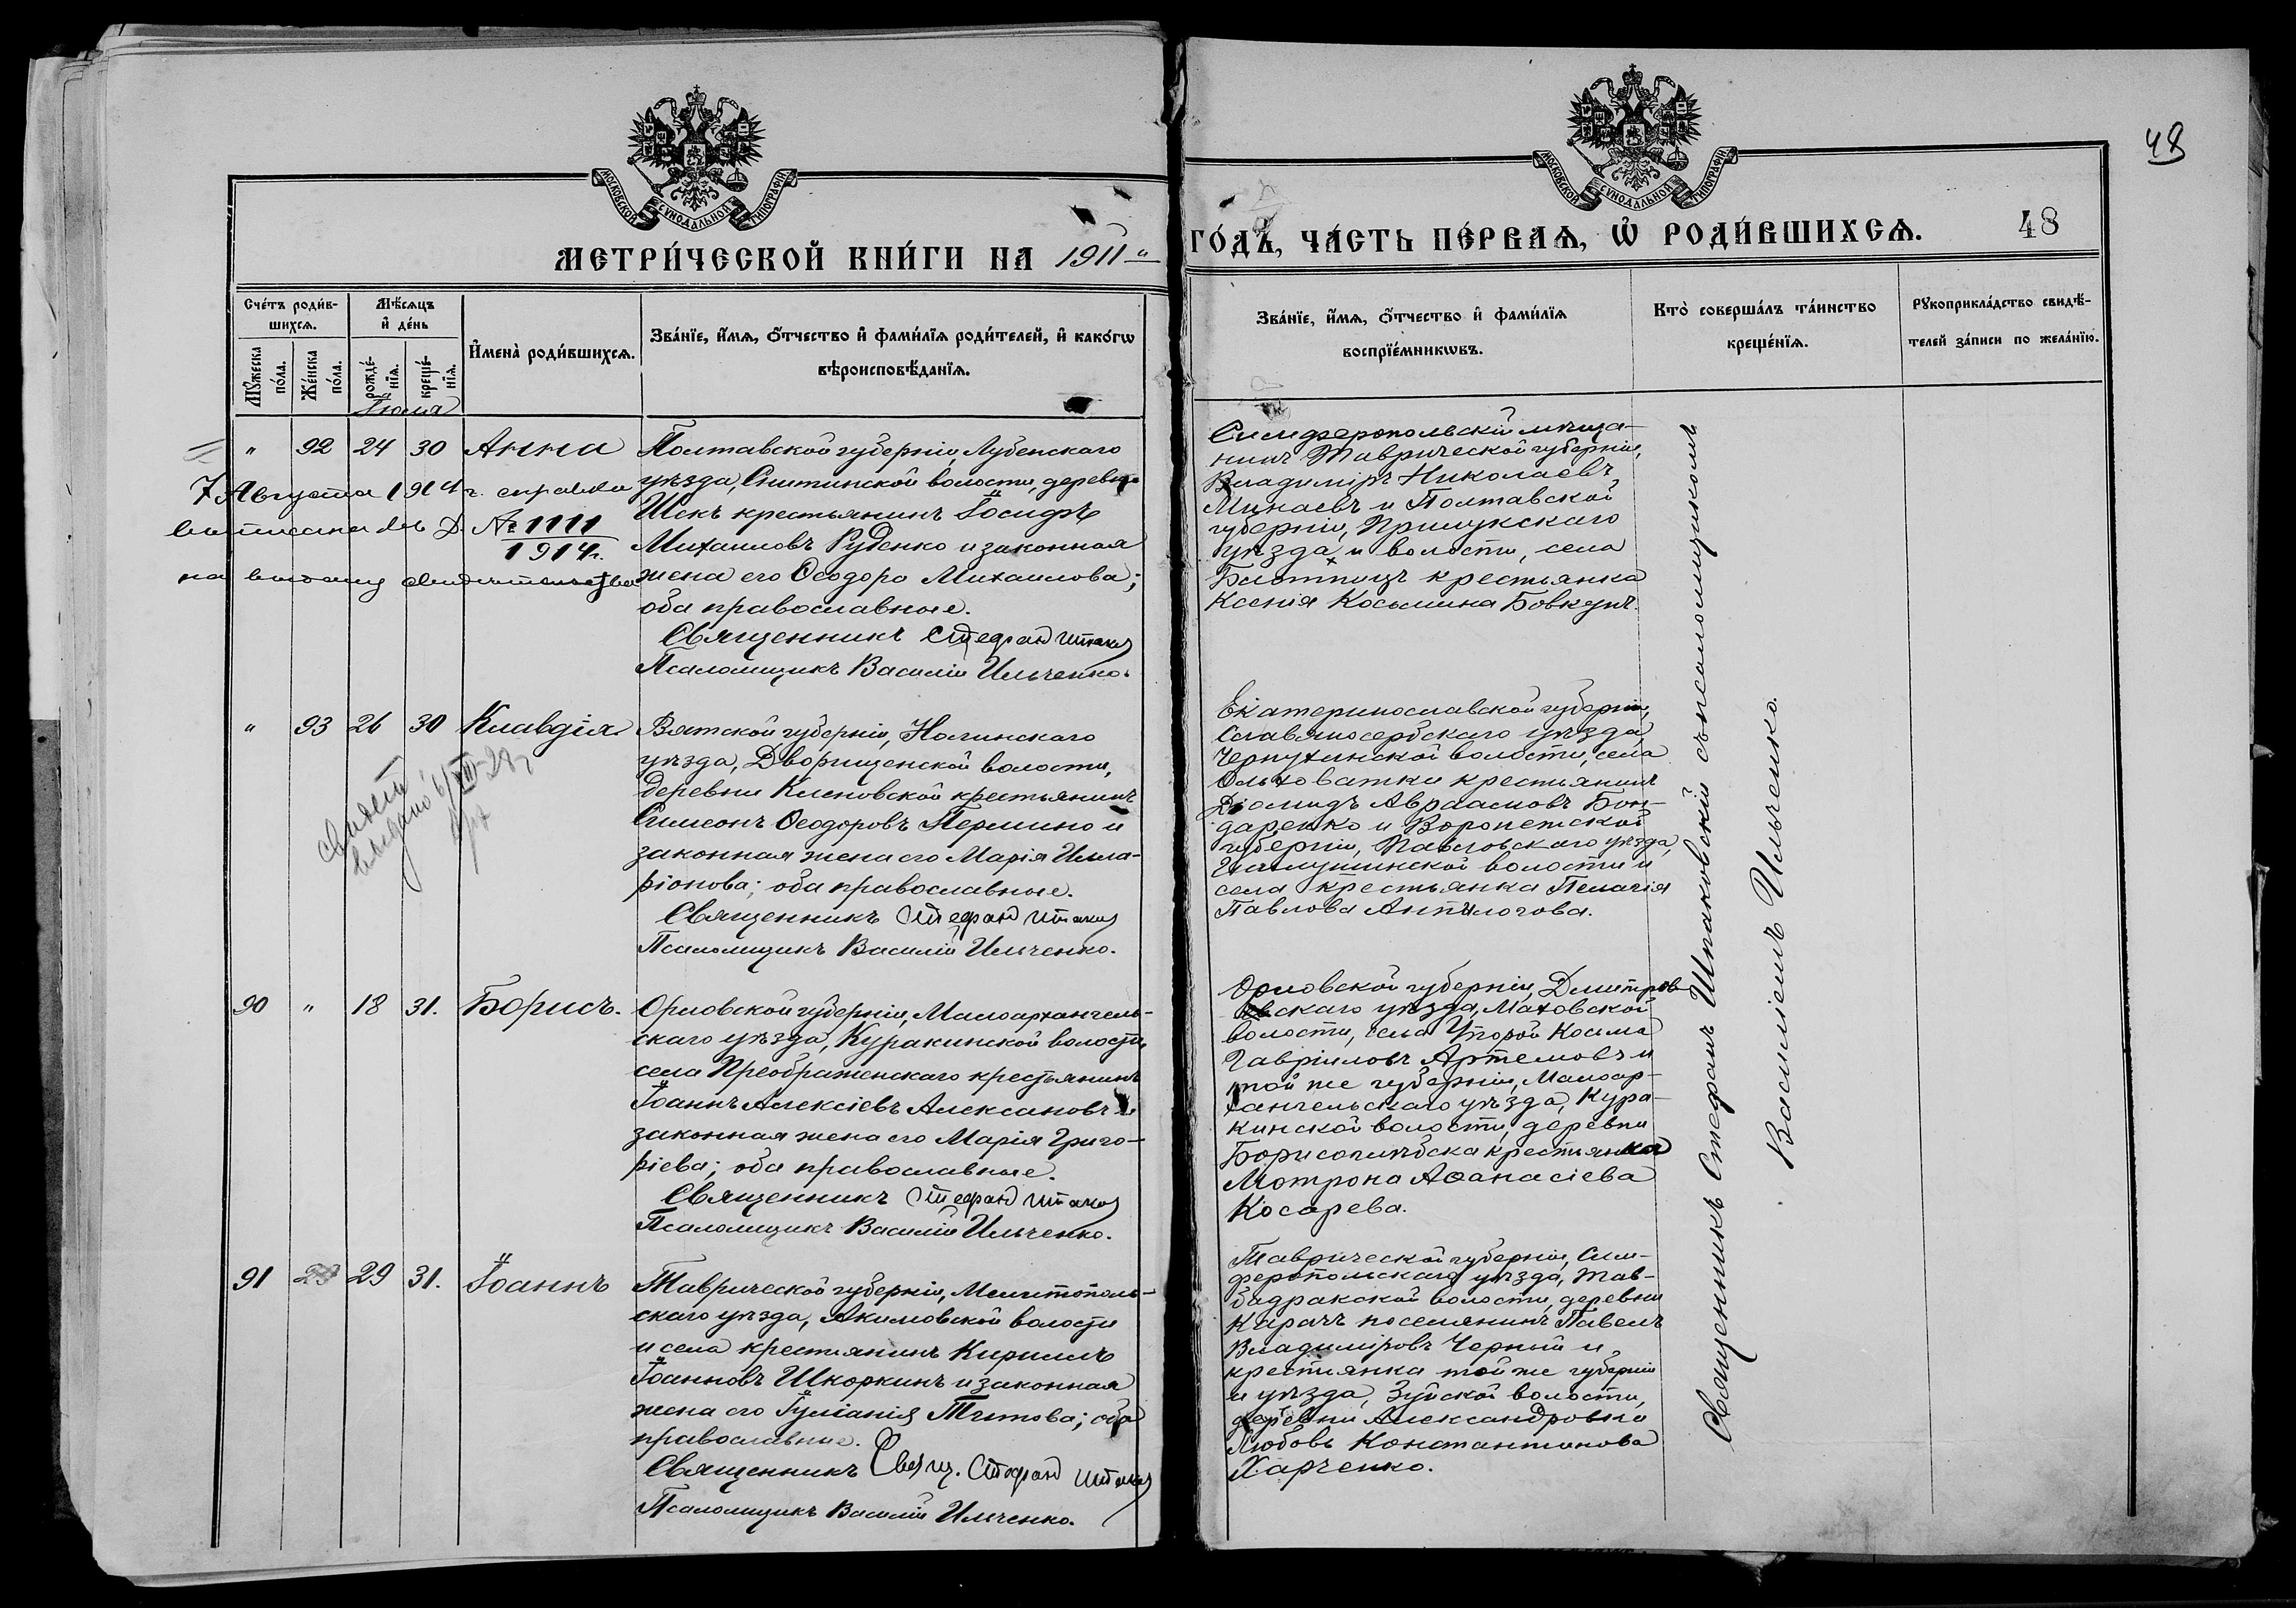 48
МОСКОВСКОЙ СУНОДАЛЬНОЙ ТИПОГРАФІИ
МОСКОВСКОЙ СУНОДАЛЬНОЙ ТИПОГРАФІИ
МЕТРИ́ЧЕСКОЙ КНИ́ГИ НА 1911 й
ГО́ДЪ, ЧА́СТЬ ПЕ́РВАѦ, Ѽ РОДИ́ВШИХСѦ. 48
Сче́тъ роди́в-
шихсѧ.
Мꙋ́жеска по́ла.
Же́нска по́ла.
Мѣ́сѧцъ
и҆ де́нь
рожде́-
нїѧ.
креще́-
нїѧ.
И҆мена̀ роди́вшихсѧ.
Зва́нїе, и҆́мѧ, ѻ҆́тчество и҆ фами́лїѧ роди́телей, и҆ како́гѡ
вѣроисповѣ́данїѧ.
Зва́нїе, и҆́мѧ, ѻ҆́тчество и҆ фами́лїѧ
воспрїе́мникѡвъ.
Кто̀ соверша́лъ та́инство
креще́нїѧ.
Рꙋкоприкла́дство свидѣ́-
телей за́писи по жела́нїю.
Іюля
" 92 24 30 Анна
Полтавской губерніи, Лубенскаго
уѣзда, Снитинской волости, деревни
Шекъ крестьянинъ Іосифъ
Михаиловъ Руденко и законная
жена его Ѳеодора Михаилова;
оба православные.
Священникъ Стефанъ Шпаков
Псаломщикъ Василій Ильченко.
7 Августа 1914 г. справка
выписана въ Д. № 1111
1914 г.
на выдачу свидѣтельства
Симферопольскій мѣща-
нинъ Таврической губерніи,
Владиміръ Николаевъ
Минаевъ и Полтавской
губерніи, Прилукскаго
уѣзда и волости, села
Блотницъ крестьянка
Ксенія Косьмина Бовкунъ.
" 93 26 30 Клавдія
Вятской губерніи, Нолинскаго
уѣзда, Дворищенской волости,
деревни Кленовской крестьянинъ
Симеонъ Ѳеодоровъ Перминъ и
законная жена его Марія Илла-
ріонова; оба православные.
Священникъ Стефанъ Шпаков
Псаломщикъ Василій Ильченко.
выдано
Екатеринославской губерніи,
Славяносербскаго уѣзда,
Чернухинской волости, села
Ольховатки крестьянинъ
Діомидъ Авраамовъ Бон-
даренко и Воронежской
губерніи, Павловскаго уѣзда,
волости и
села крестьянка Пелагія
Павлова Антилогова.
90 " 18 31. Борисъ.
Орловской губерніи, Малоархангель-
скаго уѣзда, Куракинской волости,
села Преображенскаго крестьянинъ
Іоаннъ Алексіевъ Алексановъ и
законная жена его Марія Григо-
ріева; оба православные.
Священникъ Стефанъ Шпаков
Псаломщикъ Василій Ильченко.
Орловской губерніи, Дмитров-
скаго уѣзда, Маховской
волости, села Косьма
Гавріиловъ Артемовъ и
той же губерніи, Малоар-
хангельскаго уѣзда, Кура-
кинской волости, деревни
Борисоглѣбска крестьянка
Мотрона Аѳанасіева
Косарева.
91 29 31. Іоаннъ
Таврической губерніи, Мелитополь-
скаго уѣзда, Акимовской волости
и села крестьянинъ Кириллъ
Іоанновъ Шкоркинъ и законная
жена его Іуліанія Титова; оба
православные.
Священникъ Свящ. Стефанъ Шпаков
Псаломщикъ Василій Ильченко.
Таврической губерніи, Сим-
феропольскаго уѣзда, Тав-
бадракской волости, деревни
Карачъ поселянинъ Павелъ
Владиміровъ Черный и
крестьянка той же губерніи
и уѣзда, Зуйской волости,
деревни Александровки
Любовь Константинова
Харченко.
Священникъ Стефанъ Шпаковскій съ псаломщикомъ
Василіемъ Ильченко.